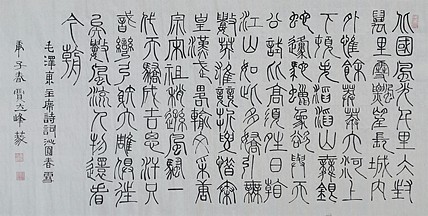 北國風光千里冰封
萬里雪飄望長城內
外惟餘莽莽大河上
下頓失滔滔山舞銀
蛇原馳蠟象欲與天
公試比高須晴日看
江山如此多嬌引無
數英雄競折腰惜秦
皇漢武略輸文采唐
宗宋祖稍遜風騷一
代天驕成吉思汗只
識彎弓射大雕俱往
矣數風流人物還看
今朝
毛澤東主席詩詞沁園春雪
庚子春